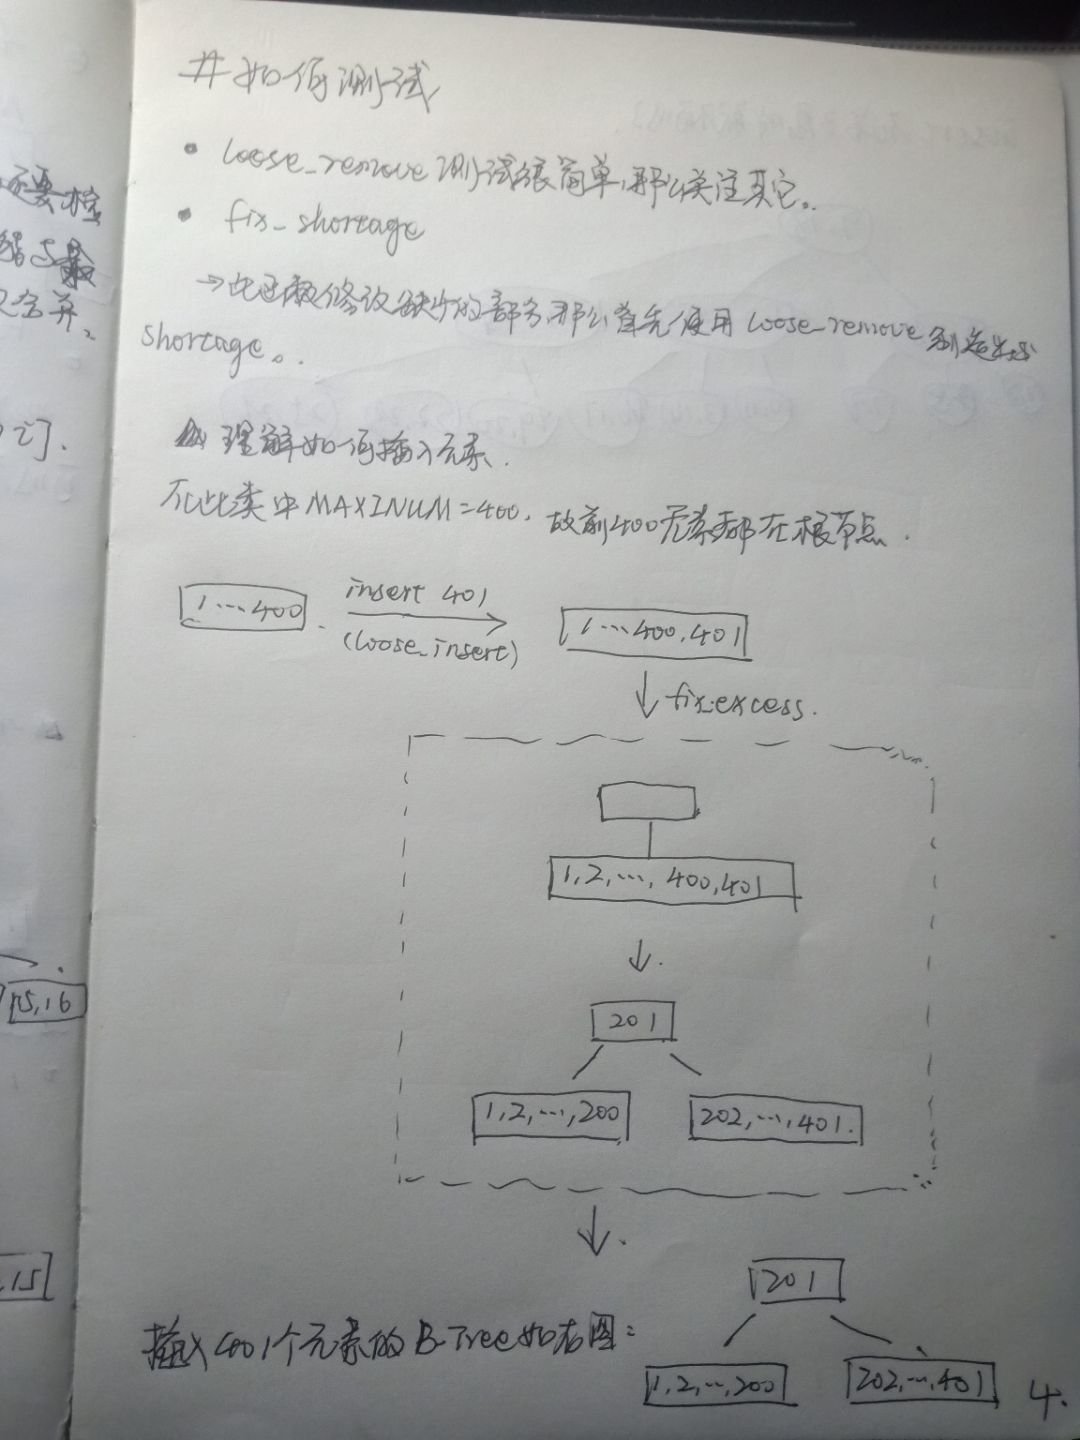 # 如何测试
• loose_remove 测试很简单,那么关注其它。
• fix_shortage
→ 修改缺少的部分,那么首先使用 loose_remove 制造出
shortage。
理解如何插入元素.
在此类中 MAXINUM=400, 故前400元素都在根节点.
1…400. insert 401 (loose_insert) 1…400,401
↓ fix_excess.
1,2,…,400,401
↓.
201
1,2,…,200 202,…,401.
↓.
201
插入401个元素的B-Tree如右图:
1,2,…,200 202,…,401
4.
还要
合并。
15,16
,15